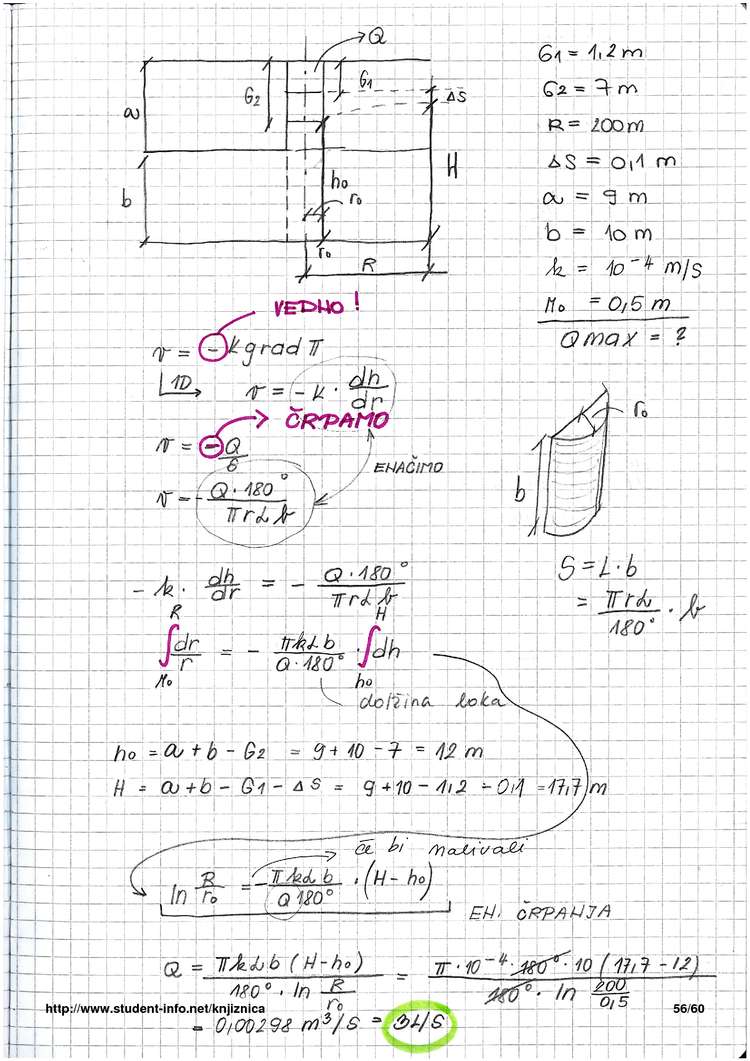 Q
G1
G2
ΔS
a
H
b
h0
r0
r0
R
G1 = 1,2 m
G2 = 7 m
R = 200 m
ΔS = 0,1 m
a = 9 m
b = 10 m
k = 10⁻⁴ m/s
r0 = 0,5 m
Qmax = ?
VEDNO !
v = - k grad π
1D v = - k · dh/dr
ČRPAMO
v = - Q/S
ENAČIMO
v = - Q · 180°/πrα b
r0
b
S = L · b
= πrα/180° · b
- k · dh/dr = - Q · 180°/πrα b
∫ dr/r = - πkα b/Q · 180° · ∫ dh
R
r0
H
h0
dolžina loka
h0 = a + b - G2 = 9 + 10 - 7 = 12 m
H = a + b - G1 - ΔS = 9 + 10 - 1,2 - 0,1 = 17,7 m
če bi nalivali
ln R/r0 = - πkα b/Q 180° · (H - h0)
EN. ČRPANJA
Q = πkα b (H - h0)/180° · ln R/r0 = π · 10⁻⁴ · 180° · 10 (17,7 - 12)/180° · ln 200/0,5
http://www.student-info.net/knjiznica
56/60
= 0,00298 m³/s = 3L/S